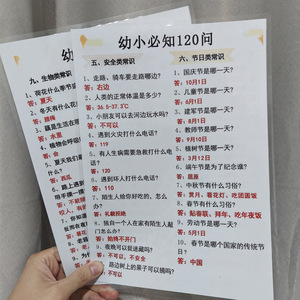 幼小必知120问
五、安全类常识
1、走路、骑车要走路哪边?
答:右边
2、人类的正常体温是多少?
答:36.5-37.3℃
3、小朋友可以去河边玩水吗?
答:不可以
4、遇到火灾打什么电话?
答:119
5、有人生病需要急救打什么电话?
答:120
6、遇到坏人打什么电话?
答:110
7、陌生人给你好吃的,怎么办?
答:礼貌拒绝
8、独自一个人在家有陌生人敲门怎么办?
答:始终不开门
9、夜晚可以捉迷藏吗?
答:不可以,不安全
路边树上的果子可以摘吗?
不可以
六、节日类常识
1、国庆节是哪一天?
答:10月1日
2、儿童节是哪一天?
答:6月1日
3、建军节是哪一天?
答:8月1日
4、
答:5月1日
5、植树节是哪一天?
答:3月12日
6、端午节是为了纪念谁?
答:屈原
7、中秋节有什么习俗?
答:赏月、看花灯、吃团圆饭
8、春节有什么习俗?
答:贴春联、拜年、吃年夜饭
9、劳动节是哪一天?
答:5月1日
10、春节是哪个国家的传统节日?
答:中国
九、生物类常识
1、荷花什么季节
答:夏天
2、冬天有什么花
答:腊梅
3、鱼是生活在哪
答:水里
4、植物会呼吸
答:会
5、夏天我们
答:西瓜
6、路上遇到